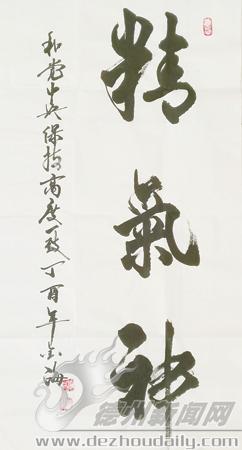 精氣神
和党中央保持高度一致丁酉年金海
德州新闻网
www.dezhoudaily.com